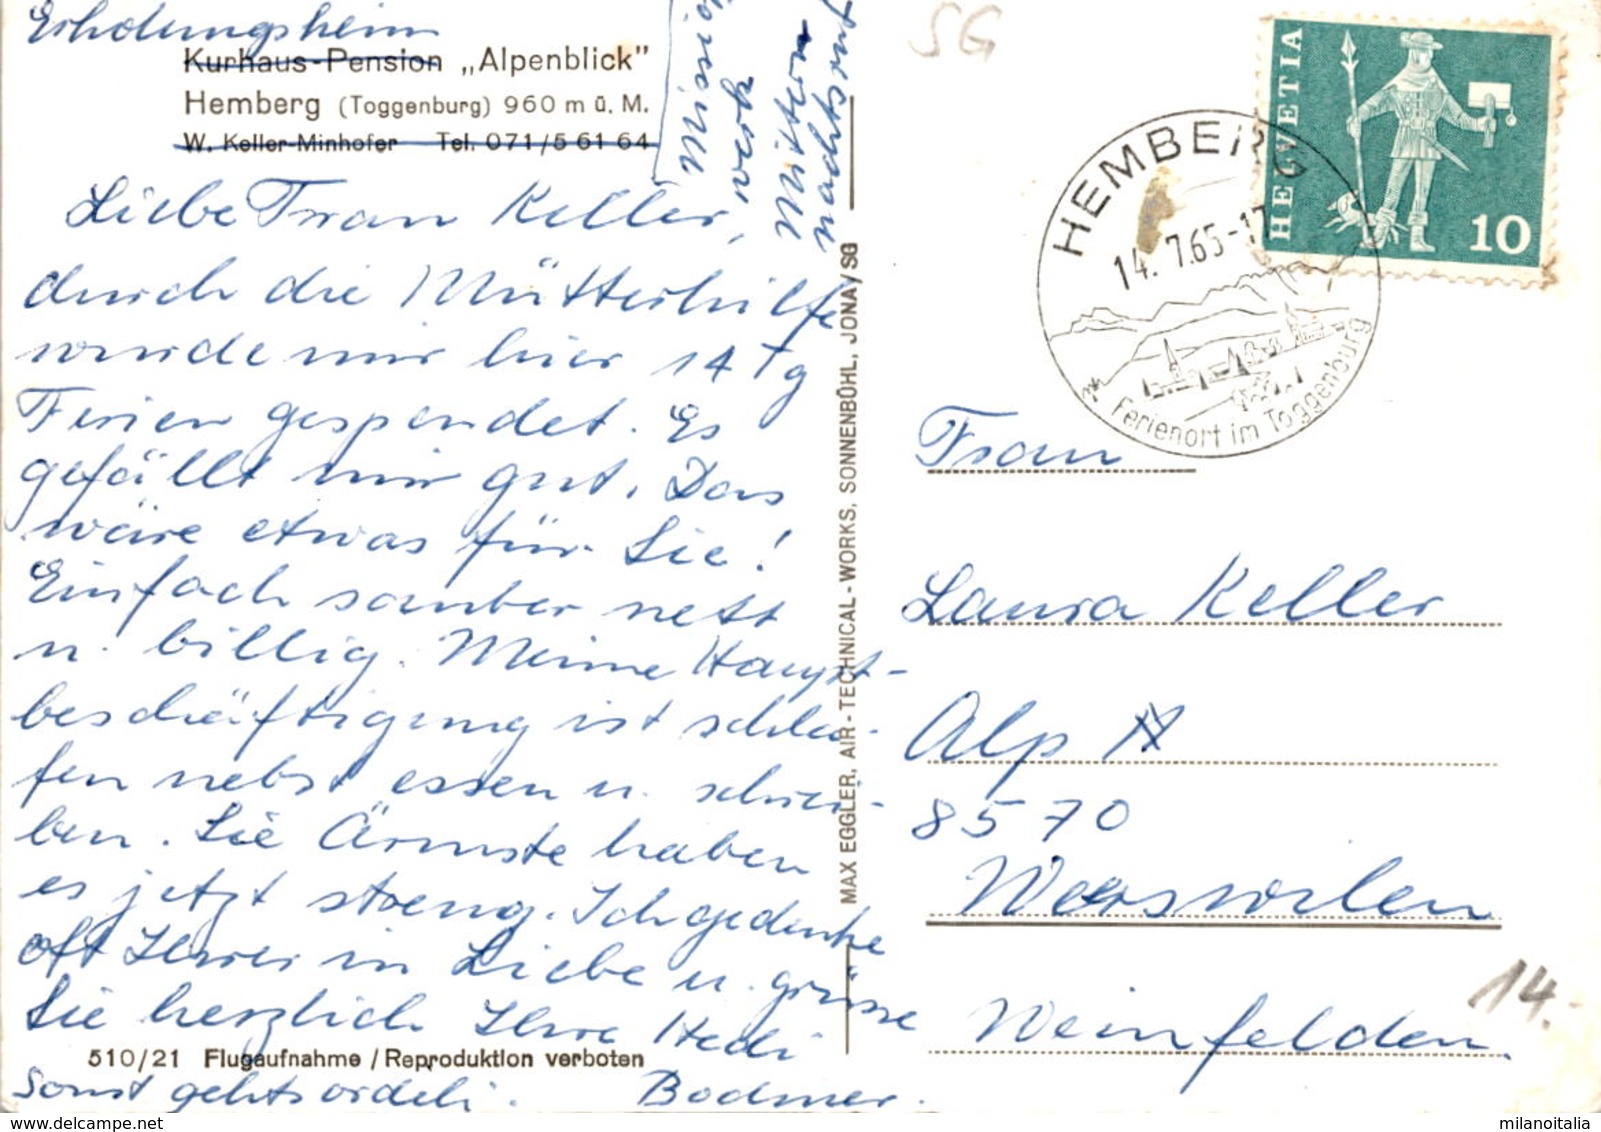 Erholungsheim
Kurhaus-Pension „Alpenblick"
Hemberg (Toggenburg) 960 m ü. M.
W. Keller-Minhofer Tel. 071/5 61 64
Liebe Frau Keller,
durch die Mütterhilfe
wurde mir hier 14 Tg
Ferien gespendet. Es
gefällt mir gut. Das
wäre etwas für Sie!
Einfach sauber nett
u. billig. Meine Haupt-
beschäftigung ist schla-
fen nebst essen u. schrei-
ben. Sie Ärmste haben
es jetzt streng. Ich gedenke
oft Ihrer in Liebe u. grüsse
Sie herzlich Ihre Hedi
510/21 Flugaufnahme / Reproduktion verboten
Sonst gehts ordeli. Bodmer.
MAX EGGLER, AIR-TECHNICAL-WORKS, SONNENBÜHL, JONA/SG
SG
HELVETIA
10
HEMBERG
14.7.65-17
Ferienort im Toggenburg
Frau
Laura Keller
Alp
8570
Weerswilen
Weinfelden
14.-
milanoitalia